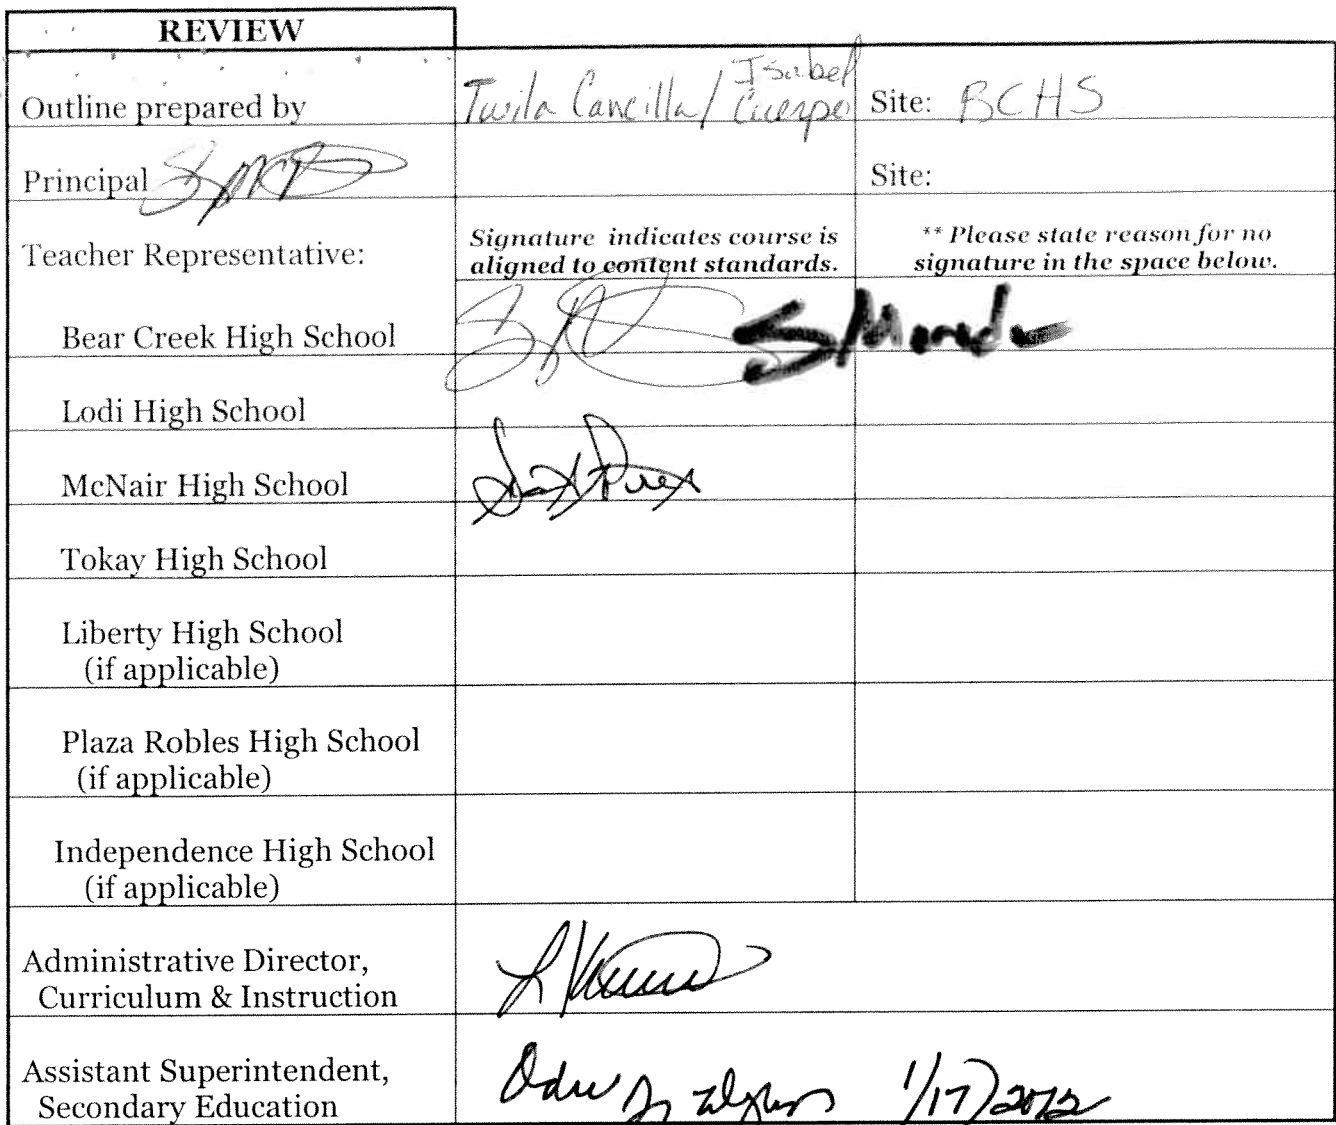 REVIEW
Outline prepared by Twila Cancilla/ Isabel Cuerpo Site: BCHS
Principal Site:
Teacher Representative: Signature indicates course is aligned to content standards. ** Please state reason for no signature in the space below.
Bear Creek High School
Lodi High School
McNair High School
Tokay High School
Liberty High School
(if applicable)
Plaza Robles High School
(if applicable)
Independence High School
(if applicable)
Administrative Director,
Curriculum & Instruction
Assistant Superintendent,
Secondary Education 1/17/2012